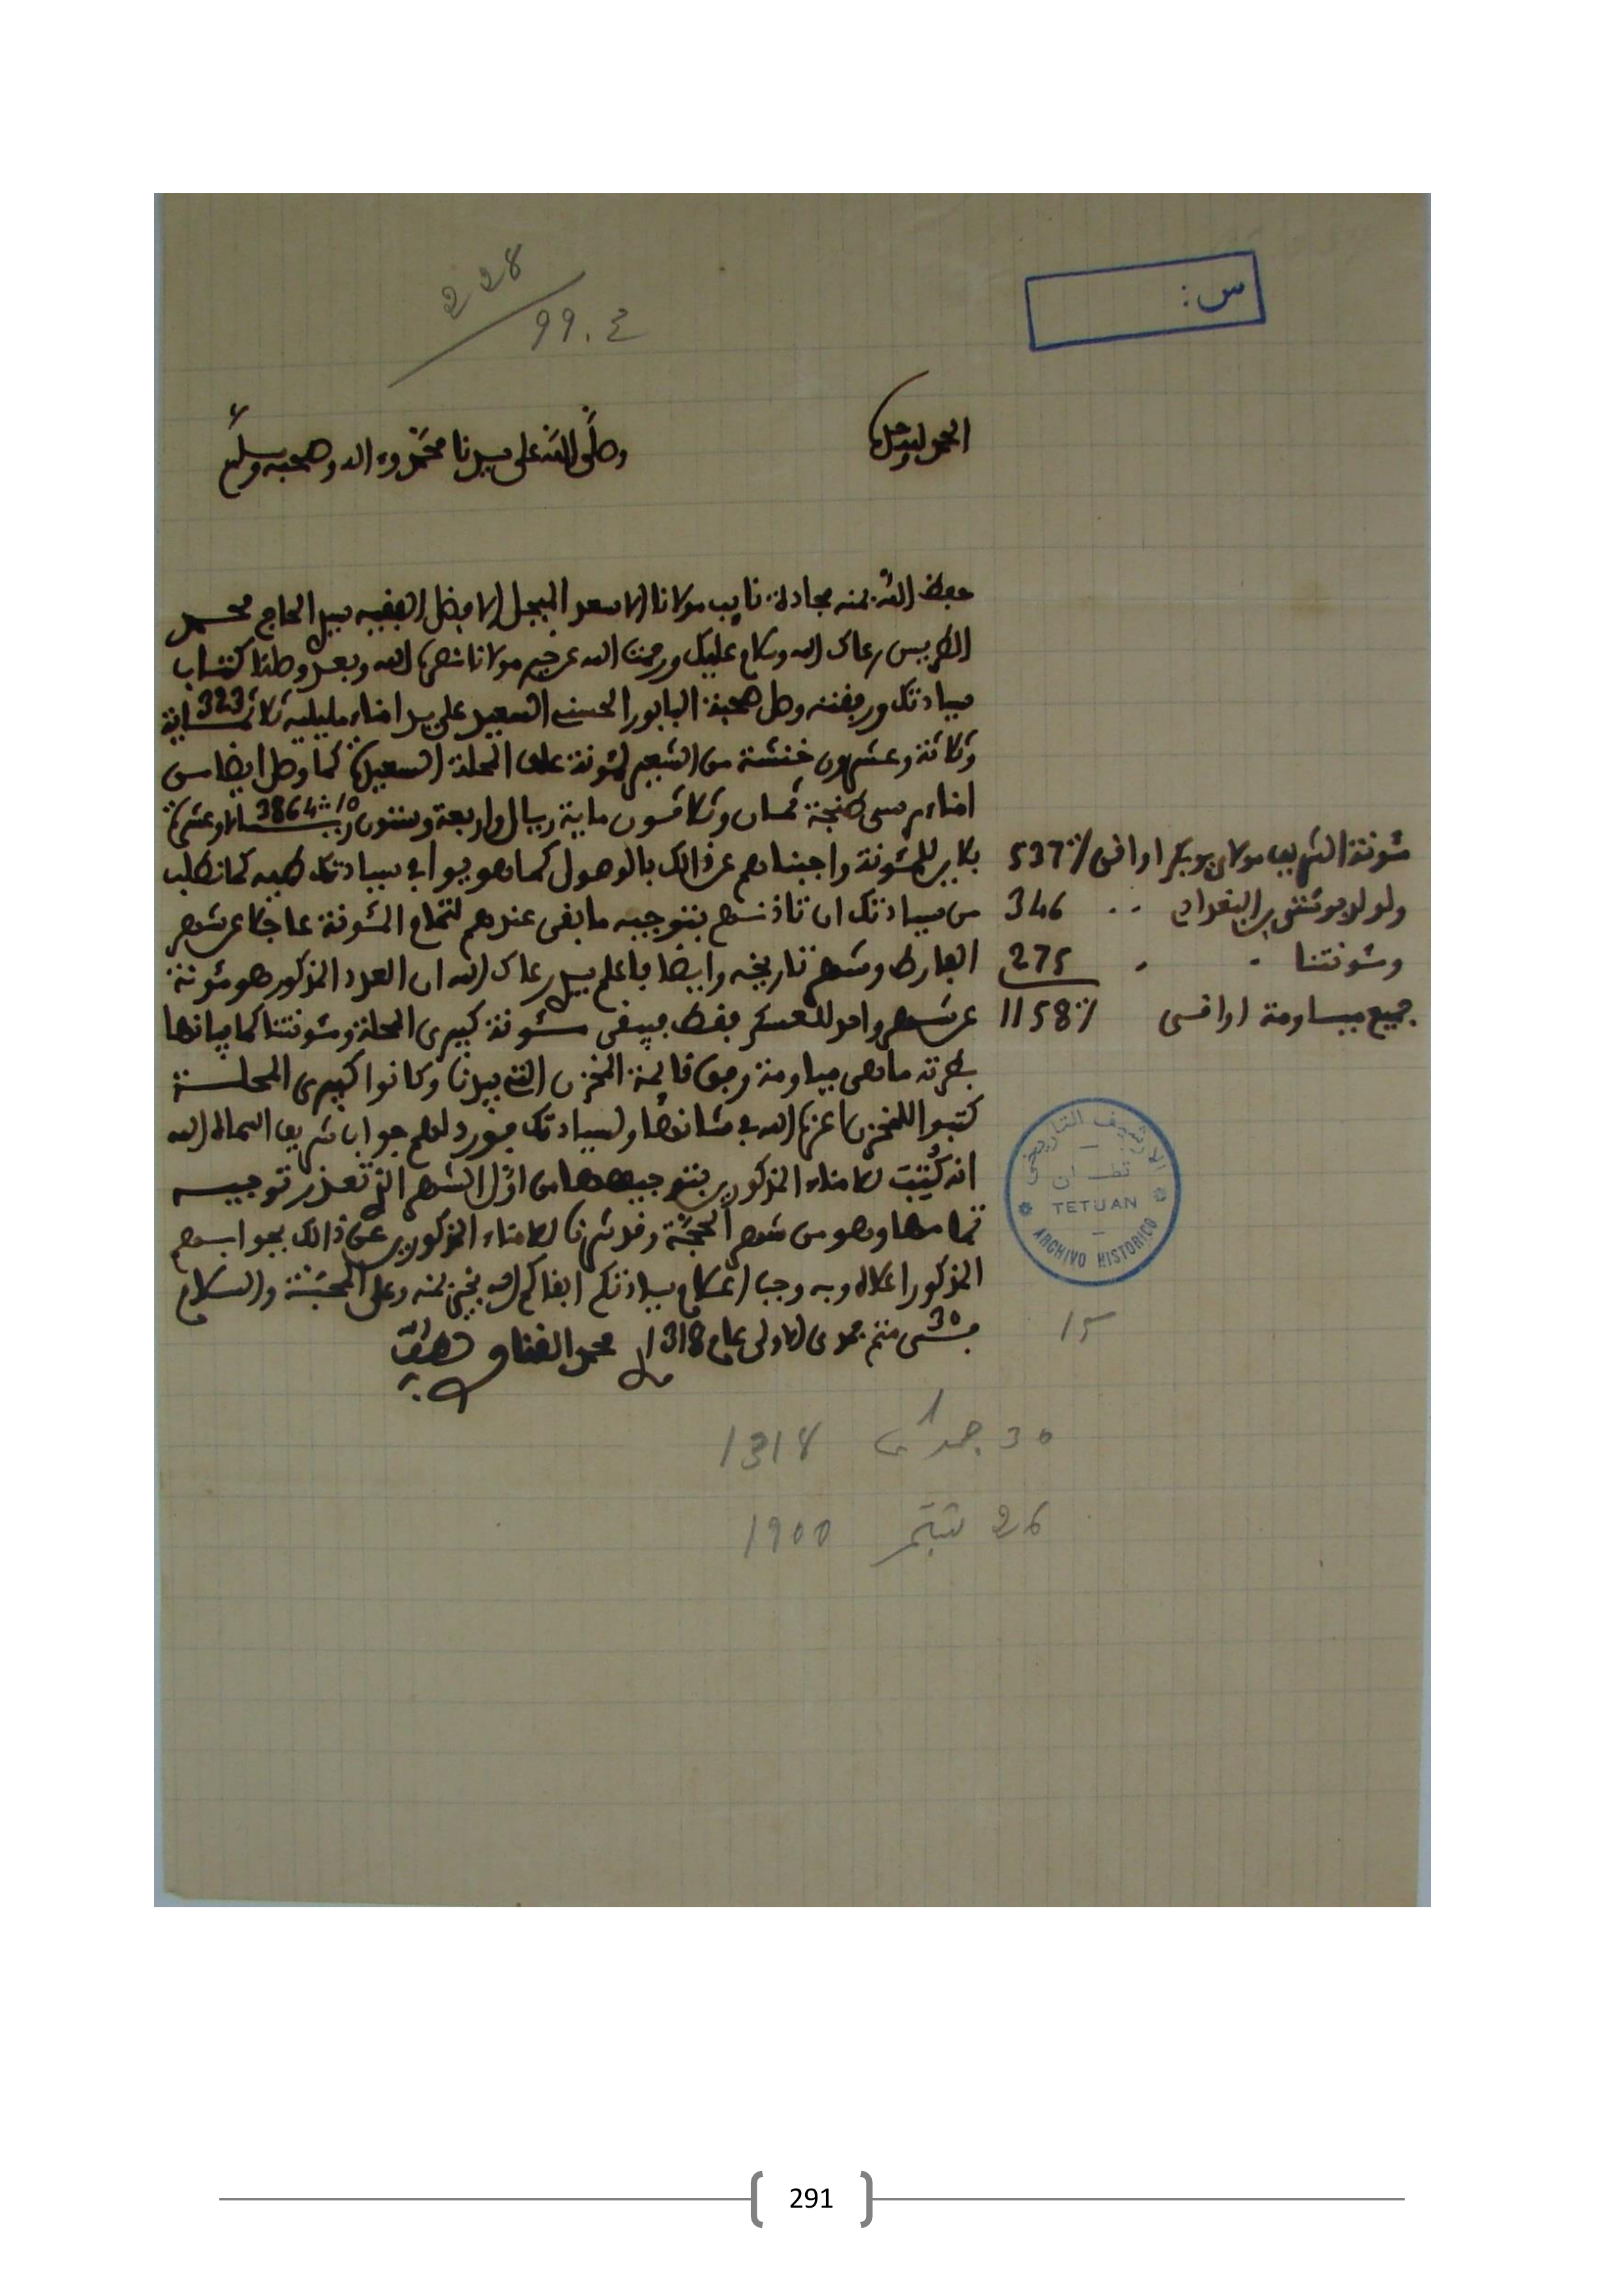 228
99.ع
س:
الحمد لله وحده
وصلى الله على سيدنا محمد وءاله وصحبه وسلم
حفظ الله بمنه مجادة نايب مولانا الاسعد المبجل الافضل الفقيه سيدي الحاج محمد
الطريس رعاك الله وسلام عليك ورحمت الله عن خير مولانا نصره الله وبعد وصلنا كتاب
سيادتك ورفقته وصل صحبة البابور الحسني السعيد على يد امناء مليلية 323 ثلاثماية
وثلاثة وعشرون خنشة من الشعير لمئونة علف المحلة السعيدة كما وصل ايضا من
امناء مرسى طنجة ثمان وثلاثون ماية ريال واربعة وستون ريالا 3864 وعشرة
بلايين للمئونة واجبناهم عن ذالك بالوصول كما هو جوابي سيادتك طيه كما نطلب
من سيادتك ان تاذنهم بتوجيه ما بقى عندهم لتمام المئونة عاجلا عن شهر
الفارط وشهر تاريخه وايضا فاعلم سيدي رعاك الله ان العدد المذكور هو مئونة
عن شهر واحد للعسكر فقط فيبقى مئونة كبيرى المحلة ومئونتنا كما بيانها
بطرته ما هي مياومة وفق قائمة المخزن التي بيدنا وكانوا كبيرى المحلة
كتبوا للمخزن اعزه الله في شانها ولسيادتك فورد لهم جواب شريف اسماه الله
انه كُتبت للامناء المذكورين بتوجيهها من اول الشهر الذي تعذر توجيه
تمامها وهو من شهر الحجة وقد ذكرنا للامناء المذكورين عن ذالك بجوابهم
المذكور اعلاه وبه وجب اعلام سيادتكم ابقاكم الله بخير بمنه وعلى المحبة والسلام
في 30 متم جمدى الاولى عام 1318 محمد الغناو لطف الله به
مئونة الشريف مولاي بوبكر اواقى 537
ولولد بوشتى بن البغدادي 346
ومئونتنا 275
جميع مياومة اواقى 1158
الارشيف التاريخي
تطــوان
TETUAN
ARCHIVO HISTORICO
15
30 جمدا 1 1318
26 شتنبر 1900
291